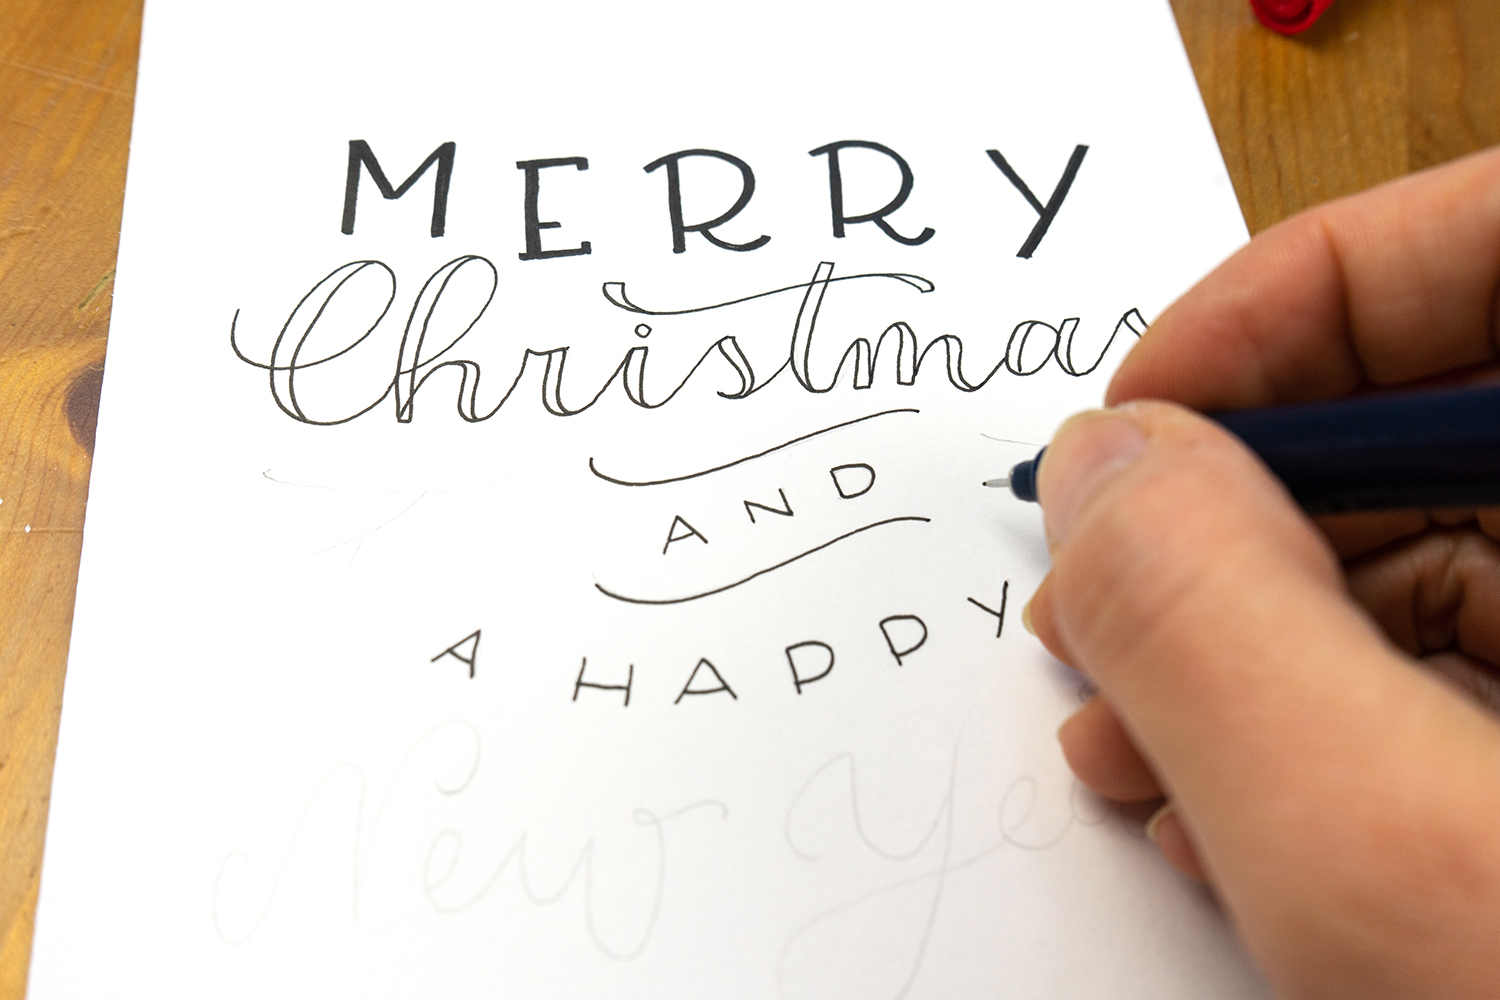 MERRY
Christmas
AND
A HAPPY
New Yea